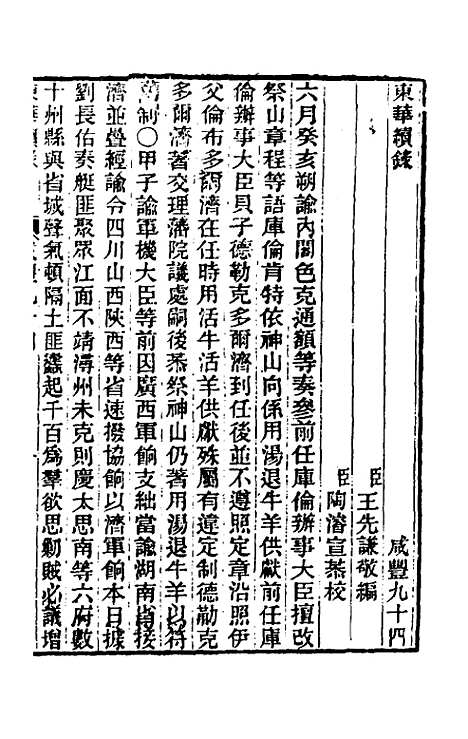 東華續錄　咸豐九十四
臣王先謙敬編
臣陶濬宣恭校
六月癸亥朔諭內閣色克通額等奏參前任庫倫辦事大臣擅改
祭山章程等語庫倫肯特依神山向係用湯退牛羊供獻前任庫
倫辦事大臣貝子德勒克多爾濟到任後並不遵照定章沿照伊
父倫布多爾濟在任時用活牛活羊供獻殊屬有違定制德勒克
多爾濟著交理藩院議處嗣後恭祭神山仍著用湯退牛羊以符
舊制〇甲子諭軍機大臣等前因廣西軍餉支絀當諭湖南省接
濟並疊經諭令四川山西陝西等省速撥協餉以濟軍餉本日據
劉長佑奏艇匪聚眾江面不靖潯州未克則慶太思南等六府數
十州縣與省城聲氣頓隔土匪蠭起千百為羣欲思勦賊必議增